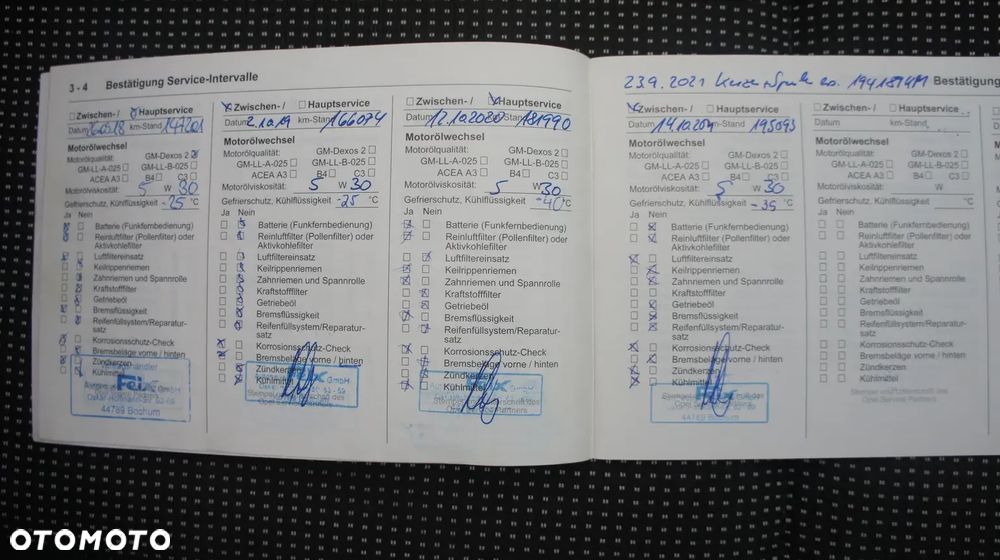 3 - 4 Bestätigung Service-Intervalle
Zwischen- / Hauptservice
Datum km-Stand 147201
Motorölwechsel
Motorölqualität: GM-Dexos 2
GM-LL-A-025 GM-LL-B-025
ACEA A3 B4 C3
Motorölviskosität: 5 W 30
Gefrierschutz, Kühlflüssigkeit -25 °C
Ja Nein
Batterie (Funkfernbedienung)
Reinluftfilter (Pollenfilter) oder
Aktivkohlefilter
Luftfiltereinsatz
Keilrippenriemen
Zahnriemen und Spannrolle
Kraftstofffilter
Getriebeöl
Bremsflüssigkeit
Reifenfüllsystem/Reparatur-
satz
Korrosionsschutz-Check
Bremsbeläge vorne / hinten
Zündkerzen
Kühlmittel
Feix
44789 Bochum
Zwischen- / Hauptservice
Datum 2.10.19 km-Stand 166074
Motorölwechsel
Motorölqualität: GM-Dexos 2
GM-LL-A-025 GM-LL-B-025
ACEA A3 B4 C3
Motorölviskosität: 5 W 30
Gefrierschutz, Kühlflüssigkeit -25 °C
Ja Nein
Batterie (Funkfernbedienung)
Reinluftfilter (Pollenfilter) oder
Aktivkohlefilter
Luftfiltereinsatz
Keilrippenriemen
Zahnriemen und Spannrolle
Kraftstofffilter
Getriebeöl
Bremsflüssigkeit
Reifenfüllsystem/Reparatur-
satz
Korrosionsschutz-Check
Bremsbeläge vorne / hinten
Zündkerzen
Kühlmittel
GmbH
Zwischen- / Hauptservice
Datum 12.10.2020 181990
Motorölwechsel
Motorölqualität: GM-Dexos 2
GM-LL-A-025 GM-LL-B-025
ACEA A3 B4 C3
Motorölviskosität: 5 W 30
Gefrierschutz, Kühlflüssigkeit -40 °C
Ja Nein
Batterie (Funkfernbedienung)
Reinluftfilter (Pollenfilter) oder
Aktivkohlefilter
Luftfiltereinsatz
Keilrippenriemen
Zahnriemen und Spannrolle
Kraftstofffilter
Getriebeöl
Bremsflüssigkeit
Reifenfüllsystem/Reparatur-
satz
Korrosionsschutz-Check
Bremsbeläge vorne / hinten
Zündkerzen
Kühlmittel
23.9.2021 Bestätigung
Zwischen- / Hauptservice
Datum km-Stand 195093
Motorölwechsel
Motorölqualität: GM-Dexos 2
GM-LL-A-025 GM-LL-B-025
ACEA A3 B4 C3
Motorölviskosität: 5 W 30
Gefrierschutz, Kühlflüssigkeit -35 °C
Ja Nein
Batterie (Funkfernbedienung)
Reinluftfilter (Pollenfilter) oder
Aktivkohlefilter
Luftfiltereinsatz
Keilrippenriemen
Zahnriemen und Spannrolle
Kraftstofffilter
Getriebeöl
Bremsflüssigkeit
Reifenfüllsystem/Reparatur-
satz
Korrosionsschutz-Check
Bremsbeläge vorne / hinten
Zündkerzen
Kühlmittel
44789 Bochum
Zwischen- / Hauptservice
Datum km-Stand
Motorölwechsel
Motorölqualität: GM-Dexos 2
GM-LL-A-025 GM-LL-B-025
ACEA A3 B4 C3
Motorölviskosität: W
Gefrierschutz, Kühlflüssigkeit °C
Ja Nein
Batterie (Funkfernbedienung)
Reinluftfilter (Pollenfilter) oder
Aktivkohlefilter
Luftfiltereinsatz
Keilrippenriemen
Zahnriemen und Spannrolle
Kraftstofffilter
Getriebeöl
Bremsflüssigkeit
Reifenfüllsystem/Reparatur-
satz
Korrosionsschutz-Check
Bremsbeläge vorne / hinten
Zündkerzen
Kühlmittel
Opel Service Partners
OTOMOTO